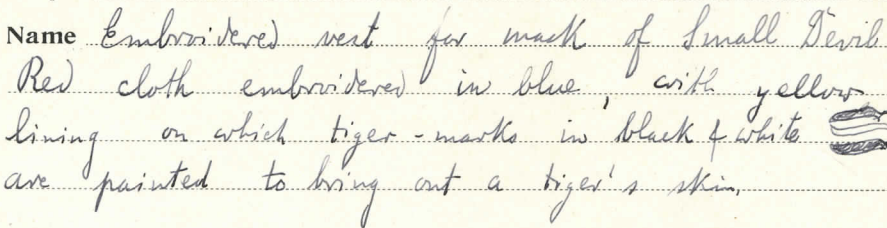 Name Embroidered vest for mask of Small Devil
Red cloth embroidered in blue, with yellow
lining on which tiger-marks in black & white
are painted to bring out a tiger's skin.